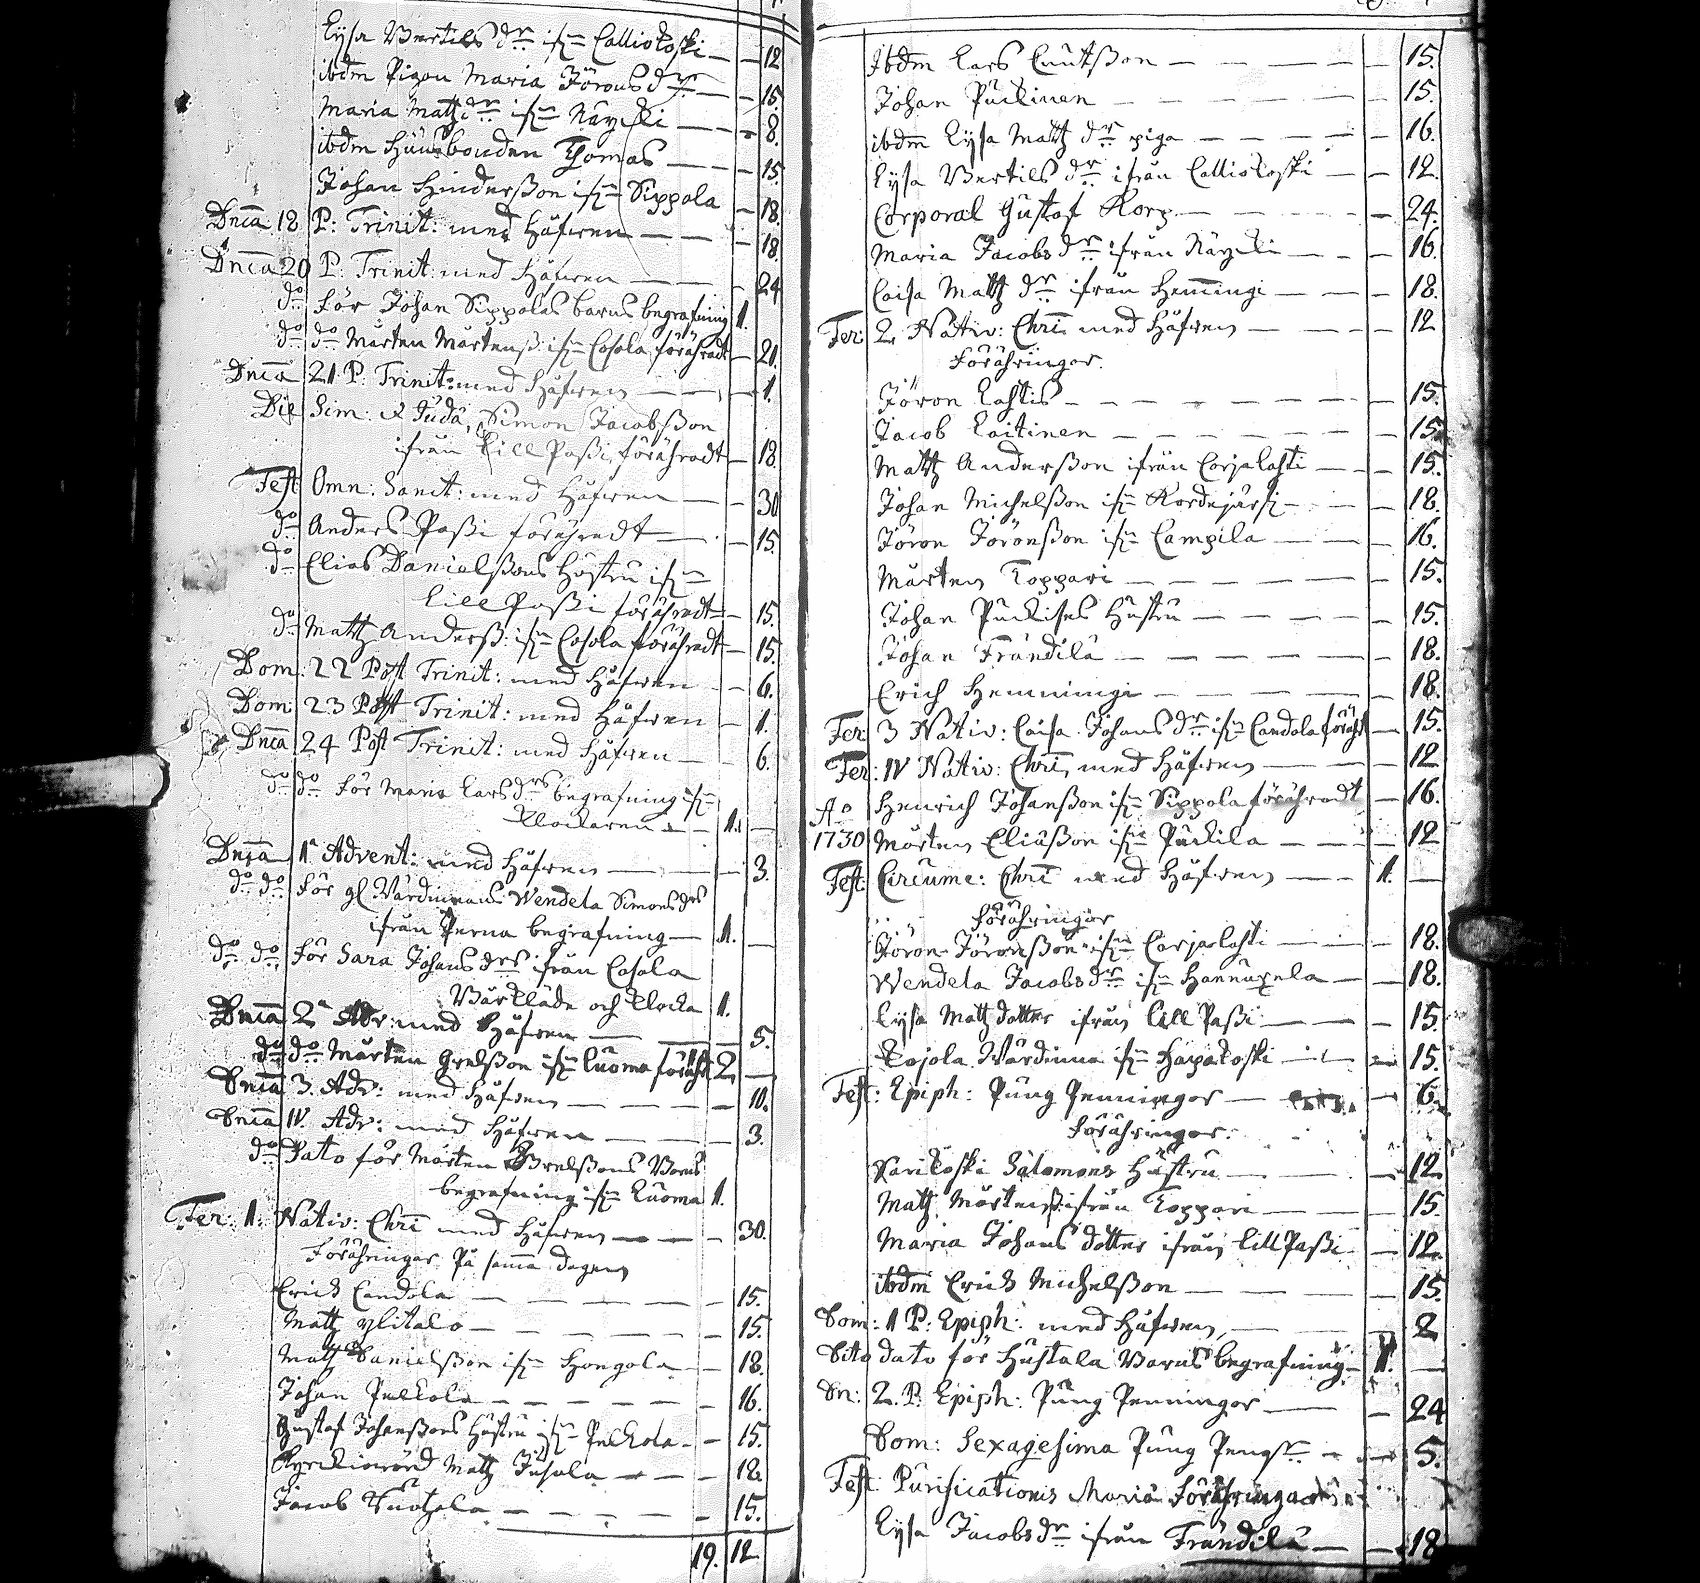 Lysa Bertils dr ifrn Calliokoski — — 12
ibdm Pigan Maria Jöransdr — — 15.
Maria Matzdr ifrn Käycki — — 8.
ibdm Huusbonden Thomas — — 15.
Johan Hindersßon ifrn Sippola — 18.
Dnica 18 P: Trinit: med Håfwen — — 18.
Dnica 20 P: Trinit: med Håfwen — — 24
do för Johan Sippolas barns begrafning 1.
do do Mårten Mårtenß: ifrn Cosola förähradt — 21.
Dnica 21 P: Trinit: med Håfwen — — 1.
Die Sim: & Judä, Simon Jacobsßon
ifrån Lill Paßi, förähradt — 18.
Fest Omn: Sanct: med Håfwen — — 30
do Anders Paßi förähradt — — 15.
do Elias Danielsßons Hustru ifrn
Lill Paßi förähradt — 15.
do Matz Anderß: ifrn Cosola förähradt — 15.
Dom: 22 Post Trinit: med Håfwen — 6.
Dom: 23 Post Trinit: med Håfwen — 1.
Dnica 24 Post Trinit: med Håfwen — 6.
do do för Maria Larsdrs begrafning ifrn
Klockaren — — 1. —
Dnica 1a Advent: med Håfwen — — 3.
do do för gl Värdinnans Wendela Simonsdrs
ifrån Perna begrafning — 1. —
do do för Sara Johansdrs ifrån Cosola
Bårkläde och Klocka 1.
Dnica 2a Adv: med Håfwen — — 5.
do do Mårten Grelsßon ifrn Luoma förährt 2. —
Dnica 3. Adv: med Håfwen — — 10.
Dnica IV. Adv: med Håfwen — — 3.
do Dato för Mårten Grelsßons Barns
begrafning ifrn Luoma 1.
Fer: 1. Nativ: Chri med Håfwen — — 30.
Förähringar På samma dagen
Erich Candola — — 15.
Matz ylitalo — — 15.
Matz Danielsßon ifrn Hongola — — 18.
Johan Pelkola — — 16.
Gustaf Johansßons Hustru ifrn Pelkola — 15.
Kyrckiowärd Matz Jusola — — 18.
Jacob — — 15.
19. 12
Ibdm Lars Cnutsßon — — 15.
Johan Puckinen — — 15.
ibdm Lysa Matz dr piga — — 16.
Lysa Bertils dr ifrån Calliokoski — — 12.
Corporal Gustaf Korp — — 24.
Maria Jacobsdr ifrån Käycki — — 16.
Caisa Matz dr ifrån Hemmingi — — 18.
Fer: 2. Nativ: Chri med Håfwen — — 12
Förähringar.
Jöran Lahtis — — 15.
Jacob Laitinen — — 15.
Matz Andersßon ifrån Corjalahti — — 15.
Johan Michelsßon ifrn — — 18.
Jöran Jöransßon ifrn Lampila — — 16.
Mårten Toppari — — 15.
Johan Puckises Hustru — — 15.
Johan Frändilä — — 18.
Erich Hemmingi — — 18.
Fer: 3 Nativ: Caisa Johansdr ifrn Candola förährt — 15.
Fer: IV Nativ: Chri med Håfwen — — 12
Ao Henrich Johansßon ifrn Sippola förähradt — 16.
1730 Mårten Eliäsßon ifrn Puckila — — 12
Fest: Circumc: Chri med Håfwen — — 1. —
Förähringar
Jöran Jöransßon ifrn Corjalahti — — 18.
Wendela Jacobsdr ifrn Hannukela — — 18.
Lysa Matzdotter ifrån Lill Paßi — — 15.
Kojola Värdinna ifrn Hapakoski — — 15.
Fest: Epiph: Pung Penningar — — 6.
Förähringar.
Karikoski Salomons Hustru — — 12
Matz Mårtenß: ifrån Toppari — — 15.
Maria Johans dotter ifrån Lill Paßi — 12.
ibdm Erich Michelsßon — — 15.
Dom: 1 P: Epiph: med Håfwen — — 2
Dito dato för Huhtala Barns begrafning — 1. —
Dn: 2. P: Epiph: Pung Penningar — — 24
Dom: Sexagesima Pung Pengr — — 5.
Fest: Purificationis Mariä Förähringar
Lysa Jacobsdr ifrån Frändilä — — 18